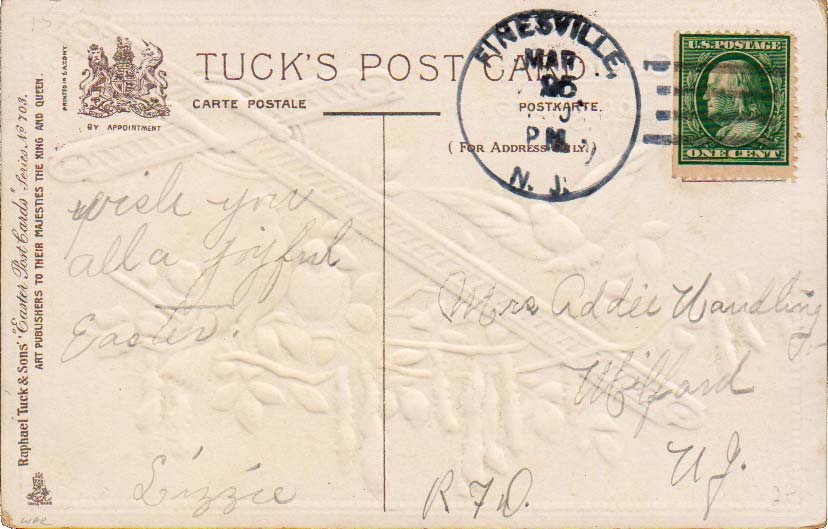 PRINTED IN SAXONY
BY APPOINTMENT
TUCK'S POST CARD.
CARTE POSTALE
POSTKARTE.
( FOR ADDRESS ONLY. )
FINESVILLE,
MAR
PM
N. J.
U.S. POSTAGE
ONE CENT
Raphael Tuck & Sons' "Easter Post Cards" Series Nº 703.
ART PUBLISHERS TO THEIR MAJESTIES THE KING AND QUEEN.
wish you
all a joyful
Easter.
Lizzie
Mrs Addie Wandling
Milford
N.J.
R F D.
TRADE MARK
WAR